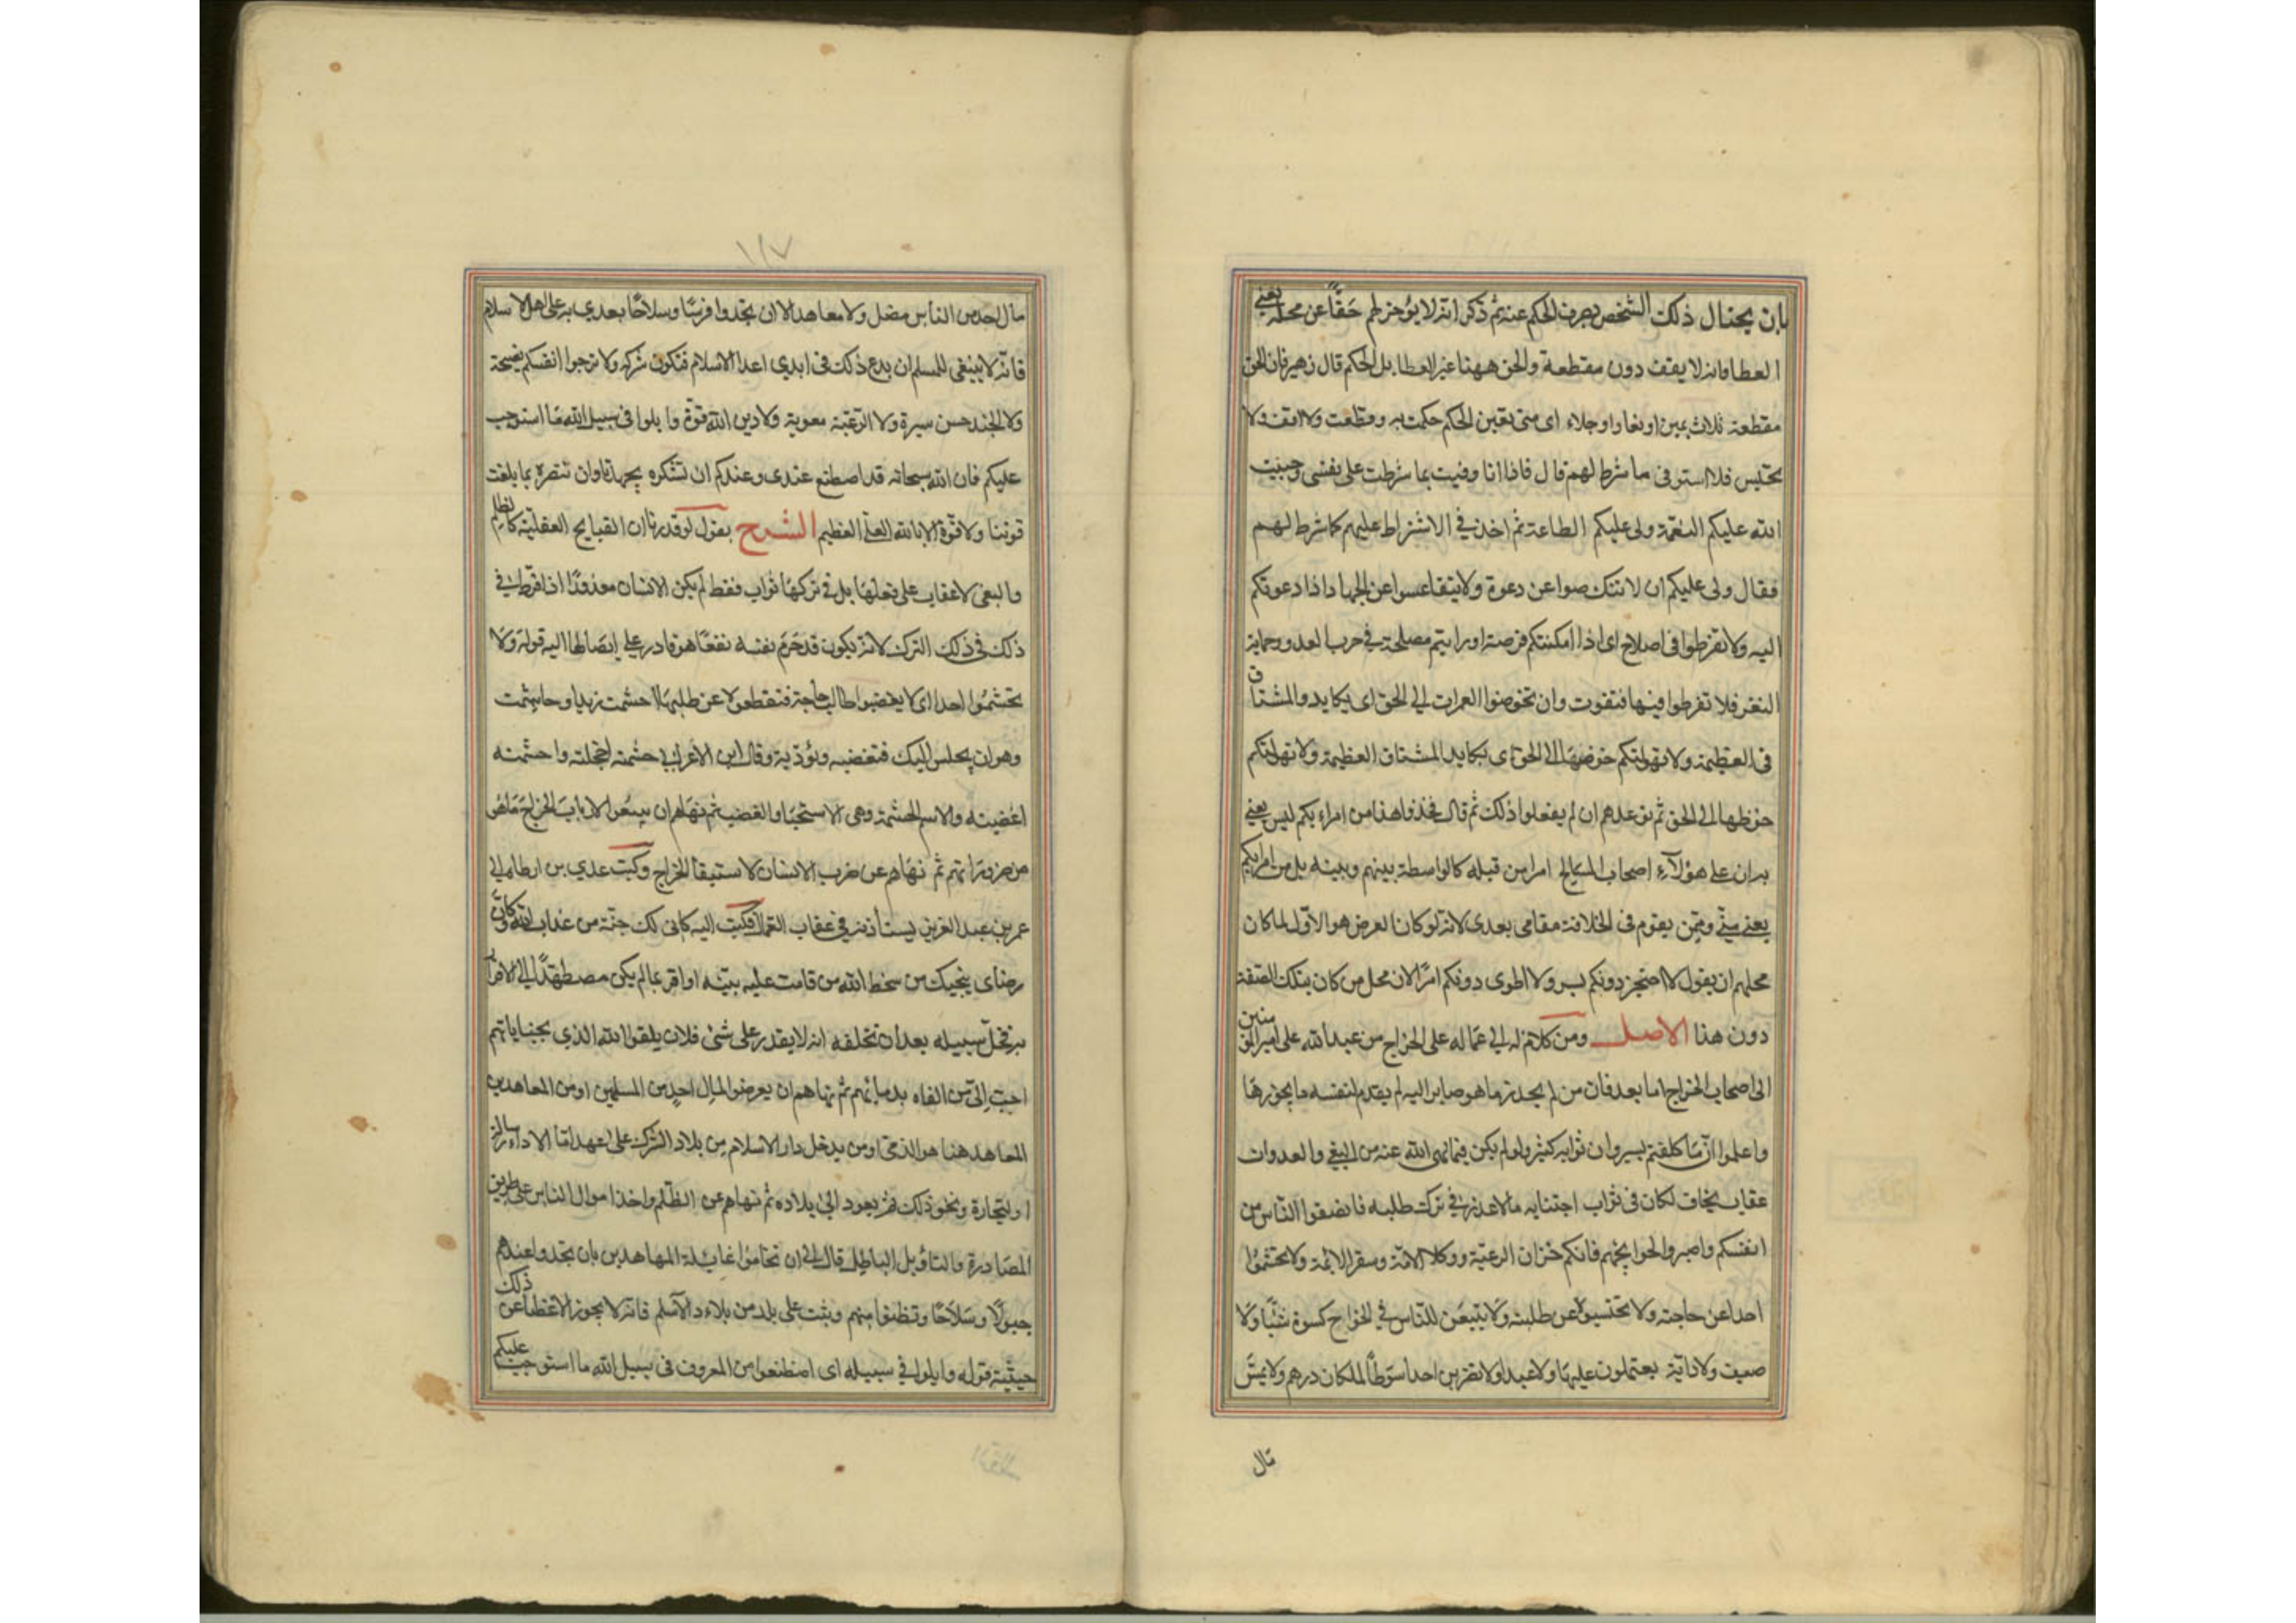 بان يحتال ذلك الشخص بصرف الحكم عنه ثم ذكر انه لا يؤخر لهم حقاً عن محله يعني
العطا وانه لا يقف دون مقطعة والحق ههنا غير العطا بل الحكم قال زهير فان الحق
مقطعه ثلاث يمين او نفار او جلاء اى متى تعين الحكم حكمت به وقطعت ولا اقف ولا
تحتبس فلما استوفى ما شرط لهم قال فاذا انا وفيت بما شرطت على نفسى وجبت
الله عليكم النعمة ولى عليكم الطاعة ثم اخذ في الاشتراط عليهم كما شرط لهم
فقال ولى عليكم ان لا تنكصوا عن دعوة ولا يتقاعسوا عن الجهاد اذا دعوتكم
اليه ولا تفرطوا فى اصلاح اى اذا امكنتكم فرصة او رايتم مصلحة في حرب العدو وحماية
الثغر فلا تفرطوا فيها فتفوت وان تخوضوا الغمرات الى الحق اى يكابد والمشتاق
فى العظيمة ولا تهولنكم خوضها الى الحق اى يكابد المشتاق العظيمة ولا تهولنكم
خوضها الى الحق ثم توعدهم ان لم يفعلوا ذلك ثم قال فخذوا هذا من امراءكم ليس يعني
به ان على هؤلآء اصحاب المسالح امرا من قبله كالواسطة بينهم وبينه بل من امرايكم
يعني مني وممن يقوم فى الخلافة مقامى بعدى لانه لو كان الغرض هو الاول لما كان
محلهم ان يقول لا احتجز دونكم بسر ولا اطوى دونكم امرًا لان محل من كان بتلك الصفة
دون هذا الاصل ومن كلام له الى عماله على الخراج من عبد الله على امير المؤمنين
الى اصحاب الخراج اما بعد فان من لم يحذر ما هو صاير اليه لم يقدم لنفسه ما يحرزها
واعلموا انّ ما كلفتم يسير وان ثوابه كثير ولو لم يكن فيما نهى الله عنه من البغي والعدوان
عقاب يخاف لكان فى ثواب اجتنابه ما لا عذر في ترك طلبه فانصفوا الناس من
انفسكم واصبروا لحوايجهم فانكم خزان الرعيّة ووكلا الامّة وسفرا الايمّة ولا تحشموا
احدا عن حاجته ولا تحتبسوه عن طلبته ولا يتبعن للناس في الخراج كسوة شتاء ولا
صيف ولا دابّة يعتملون عليها ولا عبدا ولا تضربن احدا سوطاً لمكان درهم ولا يمسّ
مال
١١٧
مال احد من الناس مصل ولا معاهد الا ان تجدوا فرسًا وسلاحًا يعدي به على اهل الاسلام
فانه لا ينبغى للمسلم ان يدع ذلك فى ايدي اعدا الاسلام فتكون شركه ولا تدخروا انفسكم نصيحة
ولا الجند حسن سيرة ولا الرعيّة معونة ولا دين الله قوّة وابلوا فى سبيل الله ما استوجب
عليكم فان الله سبحانه قد اصطنع عندى وعندكم ان نشكره بجهدنا وان ننصره بما بلغت
قوتنا ولا قوّة الا بالله العلى العظيم الشرح يقول لو قدرنا ان القبايح العقليّة كالظلم
والبغى لا عقاب على فعلها بل في تركها ثواب فقط لم يكن الانسان معذورًا اذا فرط في
ذلك فى ذلك الترك لانه يكون قد حرم نفسه نفعًا هو قادر على ايصالها اليه قوله ولا
تحشموا احدا اى لا يغضبوا طالب حاجة فتقطعوه عن طلبها احشمت زيدا وحاشمت
وهو ان يجلس اليك فتغضبه وتؤذيه وقال ابن الاعرابي حشمته اخجلته واحشمته
اغضبته والاسم الحشمة وهى الاستحيا والغضب ثم نهاهم ان يبيعوا لارباب الخراج ما هو
من ضروراتهم ثم نهاهم عن ضرب الانسان لاستيفا الخراج وكتب عدي بن ارطاة الى
عمر بن عبد العزيز يستأذنه في عقاب العمال فكتب اليه كانى لك جنّة من عذاب الله وكانّ
رضاى ينجيك من سخط الله من قامت عليه بيّنه او اقر بما لم يكن مضطهدًا الى الاقرار
به فخلّ سبيله بعد ان تحلفه انه لا يقدر على شئ فلان يلقوا الله الذي بجناياتهم
احب الىّ من القاه بدمائهم ثم نهاهم ان يعرضوا لمال احدٍ من المسلمين او من المعاهدين
المعاهد هنا هو الذمى او من يدخل دار الاسلام من بلاد الشرك على عهد اما لاداء رسالة
او لتجارة ونحو ذلك ثم يعود الى بلاده ثم نهاهم عن الظلم واخذ اموال الناس على طريق
المصادرة والتاويل الباطل قال الى ان تخافوا غايلة المعاهدين بان تجدوا عندهم
خيولًا وسلاحًا وتظنوا منهم وثبت على بلد من بلاد الاسلم فانه لا يجوز الاغضا عن ذلك
حينئذ قوله وابلوا في سبيله اى اصطنعوا من المعروف فى سبيل الله ما استوجب عليكم